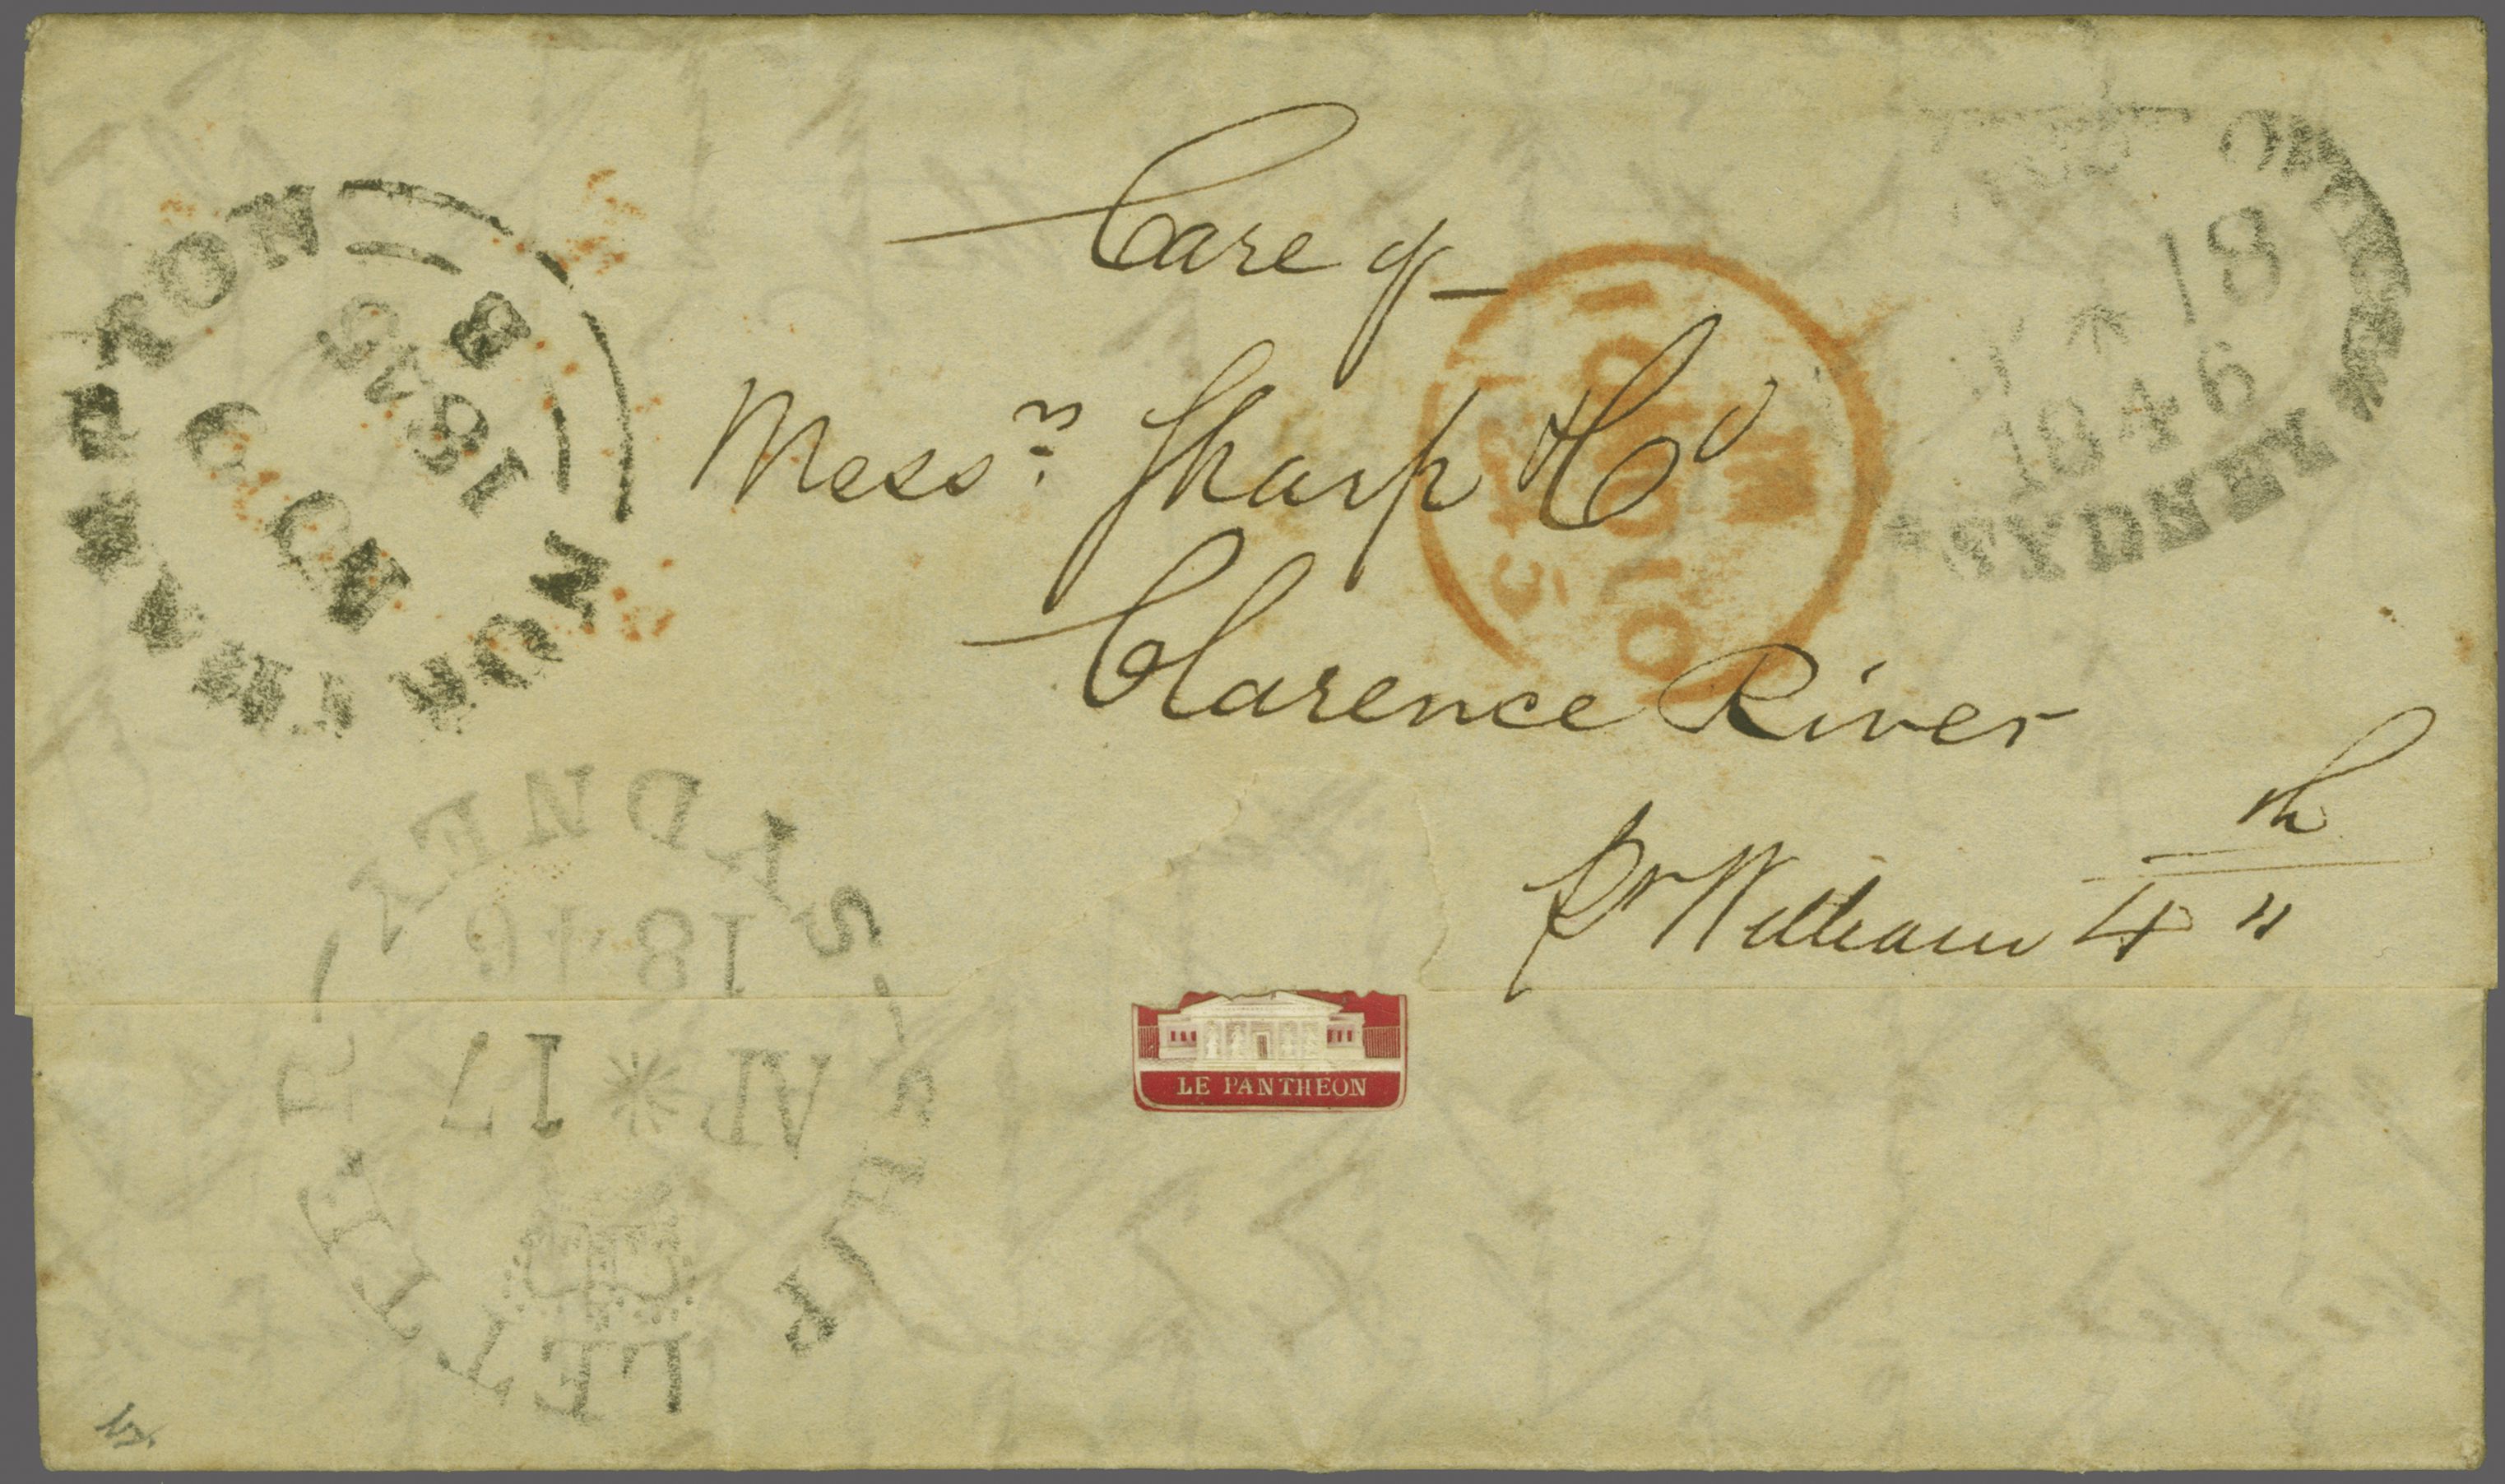 Care of
Messrs. Sharp & Co
Clarence River
Pr William 4th "
NORTHAMPTON
1845
SYDNEY
18
1846
SHIP LETTER
SYDNEY
AP * 17
1846
LE PANTHEON